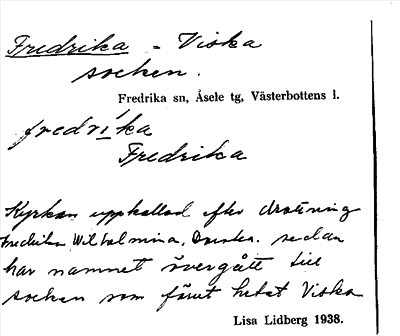 Fredrika - Viska
socken.
Fredrika sn, Åsele tg, Västerbottens l.
fredrika
Fredrika
Kyrkan uppkallad efter drottning
Fredrika Wilhelmina. sedan
har namnet övergått till
socken som förut hetat Viska
Lisa Lidberg 1938.